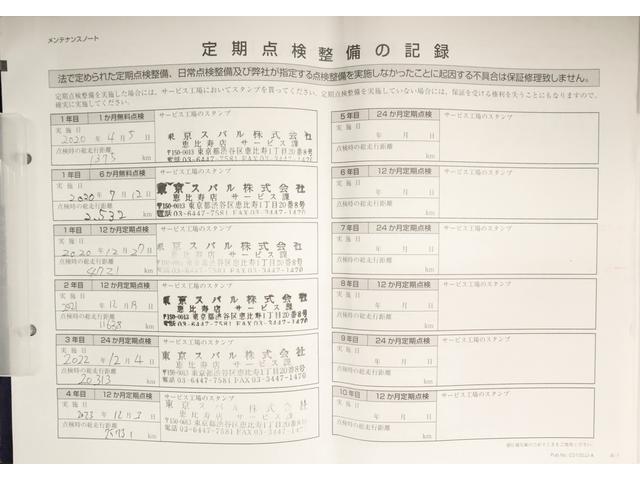 メンテナンスノート
定期点検整備の記録
法で定められた定期点検整備、日常点検整備及び弊社が指定する点検整備を実施しなかったことに起因する不具合は保証修理致しません。
定期点検整備を実施した場合には、サービス工場においてスタンプを貰ってください。定期点検整備を実施していない場合には、保証を受ける権利を失うこともなりますので、
確実に実施してください。
1年目 1か月無料点検 サービス工場のスタンプ
実施日
2020年4月5日
点検時の総走行距離
1375 km
東京スバル株式会社
恵比寿店 サービス課
〒150-0013 東京都渋谷区恵比寿1丁目20番8号
電話 03-6447-7581 FAX03-3447-1470
1年目 6か月無料点検 サービス工場のスタンプ
実施日
2020年7月12日
点検時の総走行距離
2,532 km
東京スバル株式会社
恵比寿店 サービス課
〒150-0013 東京都渋谷区恵比寿1丁目20番8号
電話 03-6447-7581 FAX03-3447-1470
1年目 12か月定期点検 サービス工場のスタンプ
実施日
2020年12月27日
点検時の総走行距離
4721 km
東京スバル株式会社
恵比寿店 サービス課
〒150-0013 東京都渋谷区恵比寿1丁目20番8号
電話 03-6447-7581 FAX03-3447-1470
2年目 12か月定期点検 サービス工場のスタンプ
実施日
2021年12月 日
点検時の総走行距離
11638 km
東京スバル株式会社
恵比寿店 サービス課
〒150-0013 東京都渋谷区恵比寿1丁目20番8号
電話 03-6447-7581 FAX03-3447-1470
3年目 12か月定期点検 サービス工場のスタンプ
実施日
2022年12月4日
点検時の総走行距離
20,313 km
東京スバル株式会社
恵比寿店 サービス課
〒150-0013 東京都渋谷区恵比寿1丁目20番8号
電話 03-6447-7581 FAX03-3447-1470
4年目 12か月定期点検 サービス工場のスタンプ
実施日
2023年12月3日
点検時の総走行距離
km
東京スバル株式会社
恵比寿店 サービス課
〒150-0013 東京都渋谷区恵比寿1丁目20番8号
電話 03-6447-7581 FAX03-3447-1470
5年目 24か月定期点検 サービス工場のスタンプ
実施日
年 月 日
点検時の総走行距離
km
6年目 12か月定期点検 サービス工場のスタンプ
実施日
年 月 日
点検時の総走行距離
km
7年目 24か月定期点検 サービス工場のスタンプ
実施日
年 月 日
点検時の総走行距離
km
8年目 12か月定期点検 サービス工場のスタンプ
実施日
年 月 日
点検時の総走行距離
km
9年目 24か月定期点検 サービス工場のスタンプ
実施日
年 月 日
点検時の総走行距離
km
10年目 12か月定期点検 サービス工場のスタンプ
実施日
年 月 日
点検時の総走行距離
km